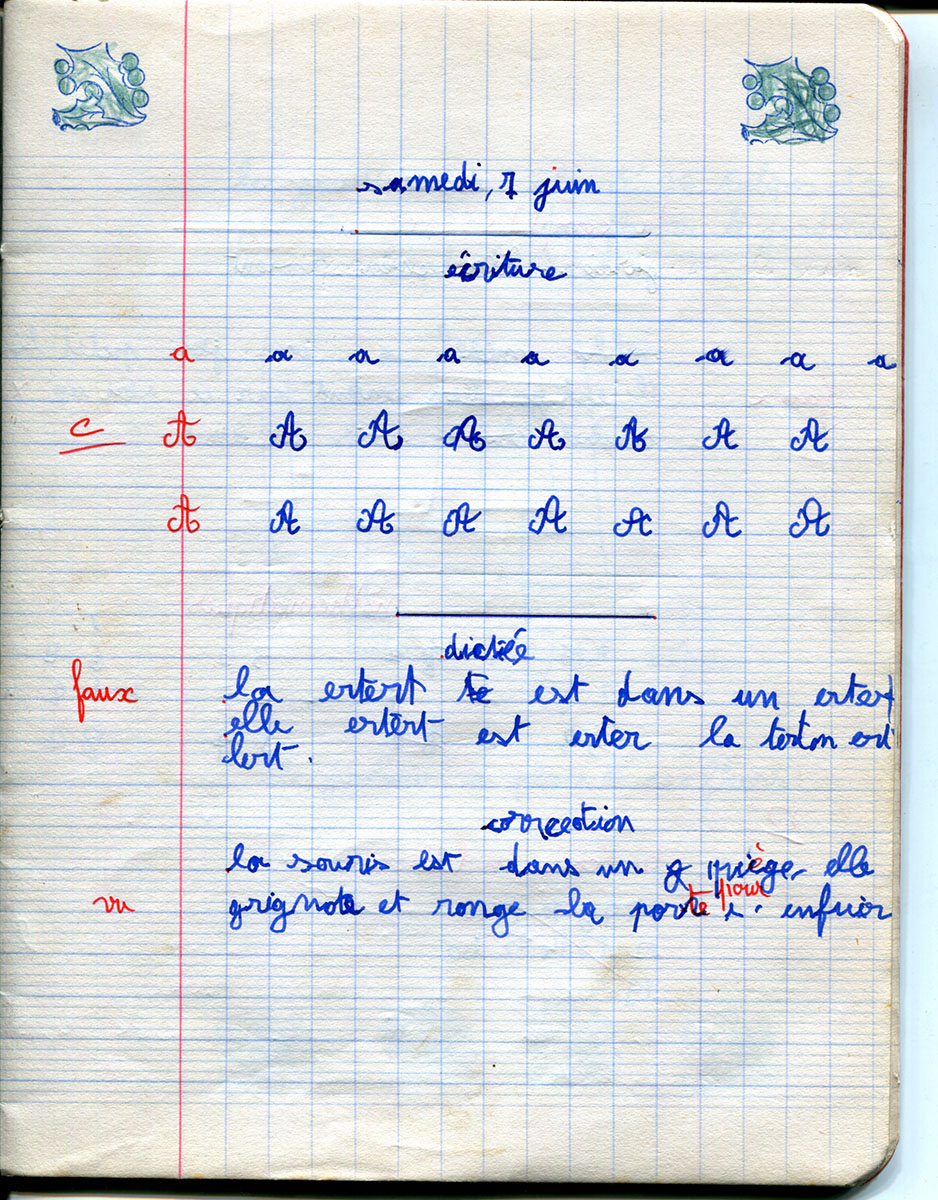 samedi, 7 juin
écriture
a a a a a a a a a
C A A A A A A A A
A A A A A A A A
dictée
faux la ertert te est dans un ertert
elle ertert est erter la terton ert
lert.
correction
la souris est dans un piège elle
te pour
vu grignote et ronge la porte s. enfuir